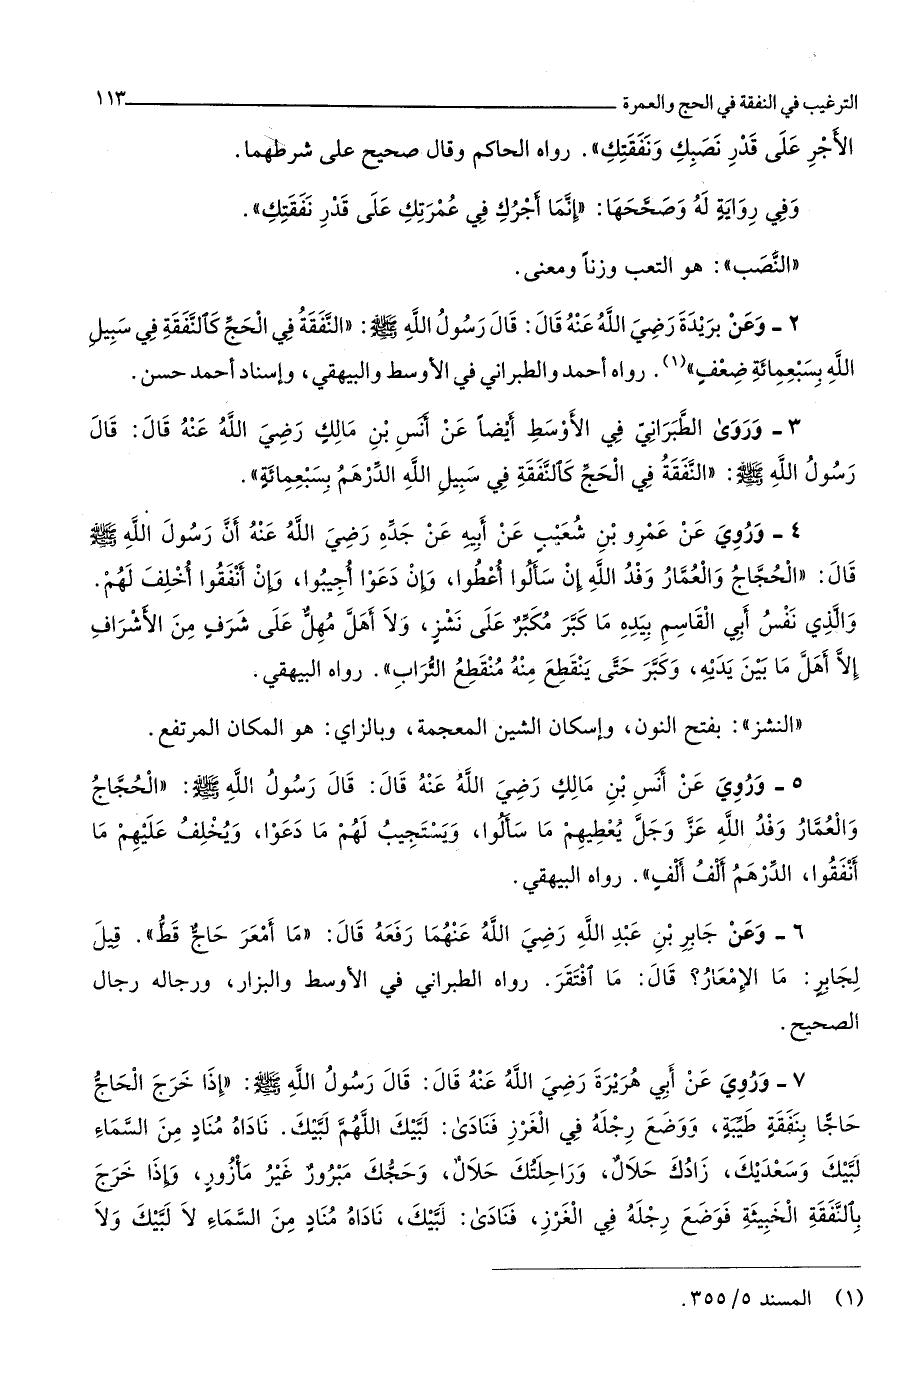 الترغيب في النفقة في الحج والعمرة ١١٣
الأَجْرِ عَلَى قَدْرِ نَصَبِكِ وَنَفَقَتِكِ». رواه الحاكم وقال صحيح على شرطهما.
وَفِي رِوَايَةٍ لَهُ وَصَحَّحَهَا: «إِنَّمَا أَجْرُكِ فِي عُمْرَتِكِ عَلَى قَدْرِ نَفَقَتِكِ».
«النَّصَب»: هو التعب وزناً ومعنى.
٢ - وَعَنْ بُرَيْدَةَ رَضِيَ اللَّهُ عَنْهُ قَالَ: قَالَ رَسُولُ اللَّهِ ﷺ: «النَّفَقَةُ فِي الْحَجِّ كَالنَّفَقَةِ فِي سَبِيلِ
اللَّهِ بِسَبْعِمِائَةِ ضِعْفٍ»(١). رواه أحمد والطبراني في الأوسط والبيهقي، وإسناد أحمد حسن.
٣ - وَرَوَىٰ الطَّبَرَانِيّ فِي الأَوْسَطِ أَيْضاً عَنْ أَنَسِ بْنِ مَالِكٍ رَضِيَ اللَّهُ عَنْهُ قَالَ: قَالَ
رَسُولُ اللَّهِ ﷺ: «النَّفَقَةُ فِي الْحَجِّ كَالنَّفَقَةِ فِي سَبِيلِ اللَّهِ الدِّرْهَمُ بِسَبْعِمِائَةٍ».
٤ - وَرُوِيَ عَنْ عَمْرِو بْنِ شُعَيْبٍ عَنْ أَبِيهِ عَنْ جَدِّهِ رَضِيَ اللَّهُ عَنْهُ أَنَّ رَسُولَ اللَّهِ ﷺ
قَالَ: «الْحُجَّاجُ وَالْعُمَّارُ وَفْدُ اللَّهِ إِنْ سَأَلُوا أُعْطُوا، وَإِنْ دَعَوْا أُجِيبُوا، وَإِنْ أَنْفَقُوا أُخْلِفَ لَهُمْ.
وَالَّذِي نَفْسُ أَبِي الْقَاسِمِ بِيَدِهِ مَا كَبَّرَ مُكَبِّرٌ عَلَى نَشْزٍ، وَلاَ أَهَلَّ مُهِلٌّ عَلَى شَرَفٍ مِنَ الأَشْرَافِ
إِلاَّ أَهَلَّ مَا بَيْنَ يَدَيْهِ، وَكَبَّرَ حَتَّى يَنْقَطِعَ مِنْهُ مُنْقَطِعُ التُّرَابِ». رواه البيهقي.
«النشز»: بفتح النون، وإسكان الشين المعجمة، وبالزاي: هو المكان المرتفع.
٥ - وَرُوِيَ عَنْ أَنَسِ بْنِ مَالِكٍ رَضِيَ اللَّهُ عَنْهُ قَالَ: قَالَ رَسُولُ اللَّهِ ﷺ: «الْحُجَّاجُ
وَالْعُمَّارُ وَفْدُ اللَّهِ عَزَّ وَجَلَّ يُعْطِيهِمْ مَا سَأَلُوا، وَيَسْتَجِيبُ لَهُمْ مَا دَعَوْا، وَيُخْلِفُ عَلَيْهِمْ مَا
أَنْفَقُوا، الدِّرْهَمُ أَلْفُ أَلْفٍ». رواه البيهقي.
٦ - وَعَنْ جَابِرِ بْنِ عَبْدِ اللَّهِ رَضِيَ اللَّهُ عَنْهُمَا رَفَعَهُ قَالَ: «مَا أَمْعَرَ حَاجٌّ قَطُّ». قِيلَ
لِجَابِرٍ: مَا الإِمْعَارُ؟ قَالَ: مَا ٱفْتَقَرَ. رواه الطبراني في الأوسط والبزار، ورجاله رجال
الصحيح.
٧ - وَرُوِيَ عَنْ أَبِي هُرَيْرَةَ رَضِيَ اللَّهُ عَنْهُ قَالَ: قَالَ رَسُولُ اللَّهِ ﷺ: «إِذَا خَرَجَ الْحَاجُّ
حَاجًّا بِنَفَقَةٍ طَيِّبَةٍ، وَوَضَعَ رِجْلَهُ فِي الْغَرْزِ فَنَادَىٰ: لَبَّيْكَ اللَّهُمَّ لَبَّيْكَ. نَادَاهُ مُنَادٍ مِنَ السَّمَاءِ
لَبَّيْكَ وَسَعْدَيْكَ، زَادُكَ حَلاَلٌ، وَرَاحِلَتُكَ حَلاَلٌ، وَحَجُّكَ مَبْرُورٌ غَيْرُ مَأْزُورٍ، وَإِذَا خَرَجَ
بِالنَّفَقَةِ الْخَبِيثَةِ فَوَضَعَ رِجْلَهُ فِي الْغَرْزِ، فَنَادَىٰ: لَبَّيْكَ، نَادَاهُ مُنَادٍ مِنَ السَّمَاءِ لاَ لَبَّيْكَ وَلاَ
(١) المسند ٥/ ٣٥٥.